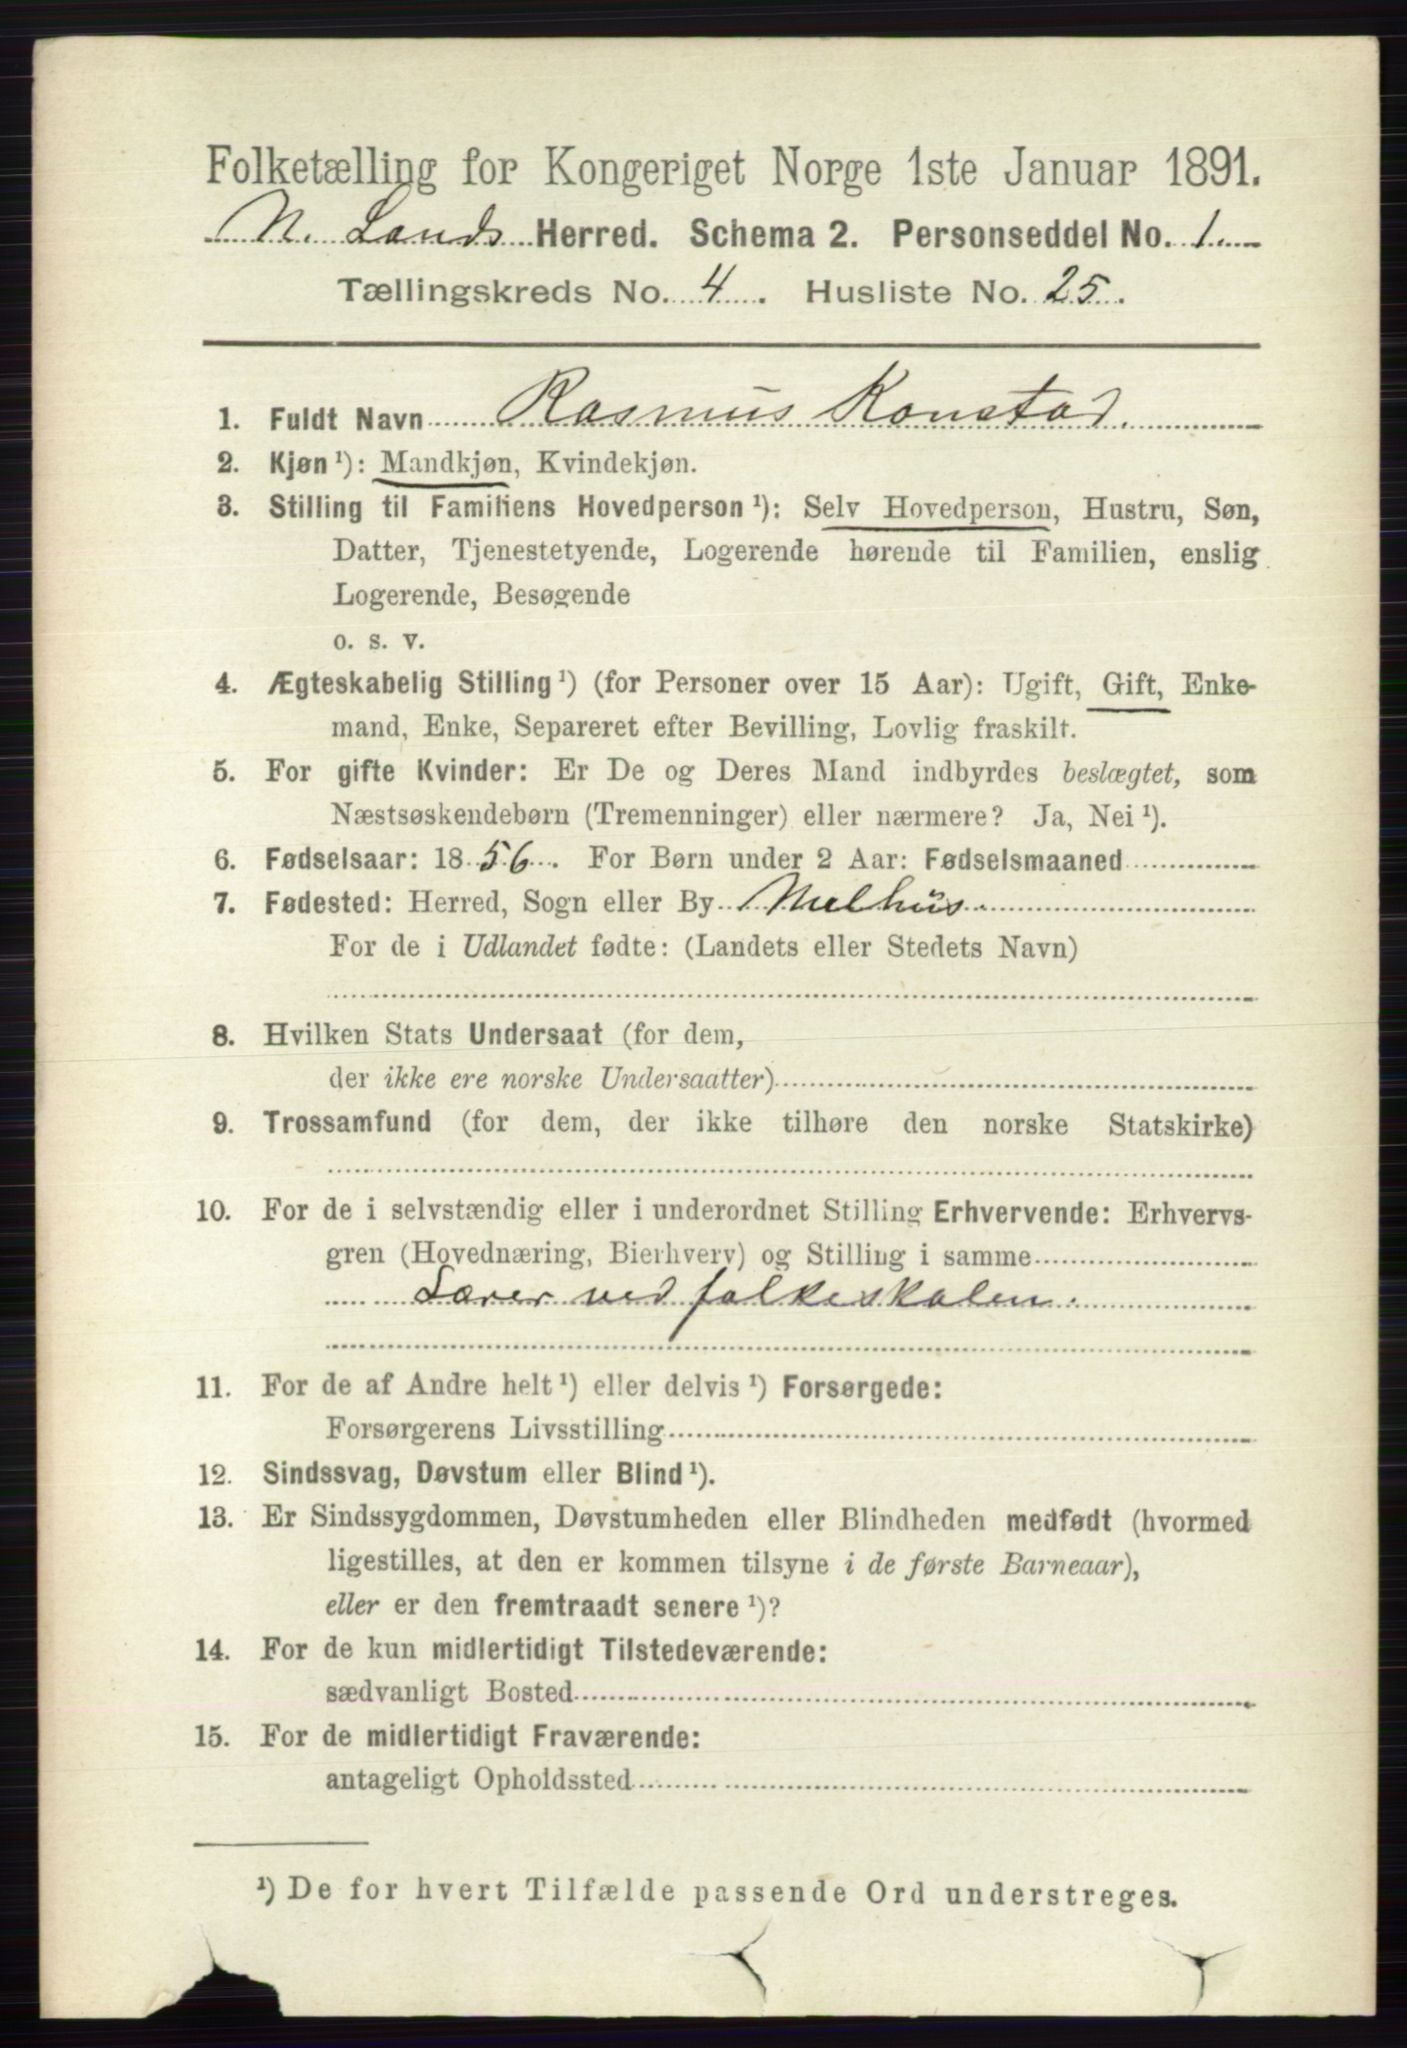 Folketælling for Kongeriget Norge 1ste Januar 1891.
N. Lands Herred. Schema 2. Personseddel No. 1.
Tællingskreds No. 4. Husliste No. 25.
1. Fuldt Navn Rasmus Konstad.
2. Kjøn ¹): Mandkjøn, Kvindekjøn.
3. Stilling til Familiens Hovedperson ¹): Selv Hovedperson, Hustru, Søn,
Datter, Tjenestetyende, Logerende hørende til Familien, enslig
Logerende, Besøgende
o. s. v.
4. Ægteskabelig Stilling ¹) (for Personer over 15 Aar): Ugift, Gift, Enke-
mand, Enke, Separeret efter Bevilling, Lovlig fraskilt.
5. For gifte Kvinder: Er De og Deres Mand indbyrdes beslægtet, som
Næstsøskendebørn (Tremenninger) eller nærmere? Ja, Nei ¹).
6. Fødselsaar: 1856. For Børn under 2 Aar: Fødselsmaaned
7. Fødested: Herred, Sogn eller By Melhus.
For de i Udlandet fødte: (Landets eller Stedets Navn)
8. Hvilken Stats Undersaat (for dem,
der ikke ere norske Undersaatter)
9. Trossamfund (for dem, der ikke tilhøre den norske Statskirke)
10. For de i selvstændig eller i underordnet Stilling Erhvervende: Erhvervs-
gren (Hovednæring, Bierhverv) og Stilling i samme
Lærer ved folkeskolen.
11. For de af Andre helt ¹) eller delvis ¹) Forsørgede:
Forsørgerens Livsstilling
12. Sindssvag, Døvstum eller Blind ¹).
13. Er Sindssygdommen, Døvstumheden eller Blindheden medfødt (hvormed
ligestilles, at den er kommen tilsyne i de første Barneaar),
eller er den fremtraadt senere ¹)?
14. For de kun midlertidigt Tilstedeværende:
sædvanligt Bosted
15. For de midlertidigt Fraværende:
antageligt Opholdssted
¹) De for hvert Tilfælde passende Ord understreges.